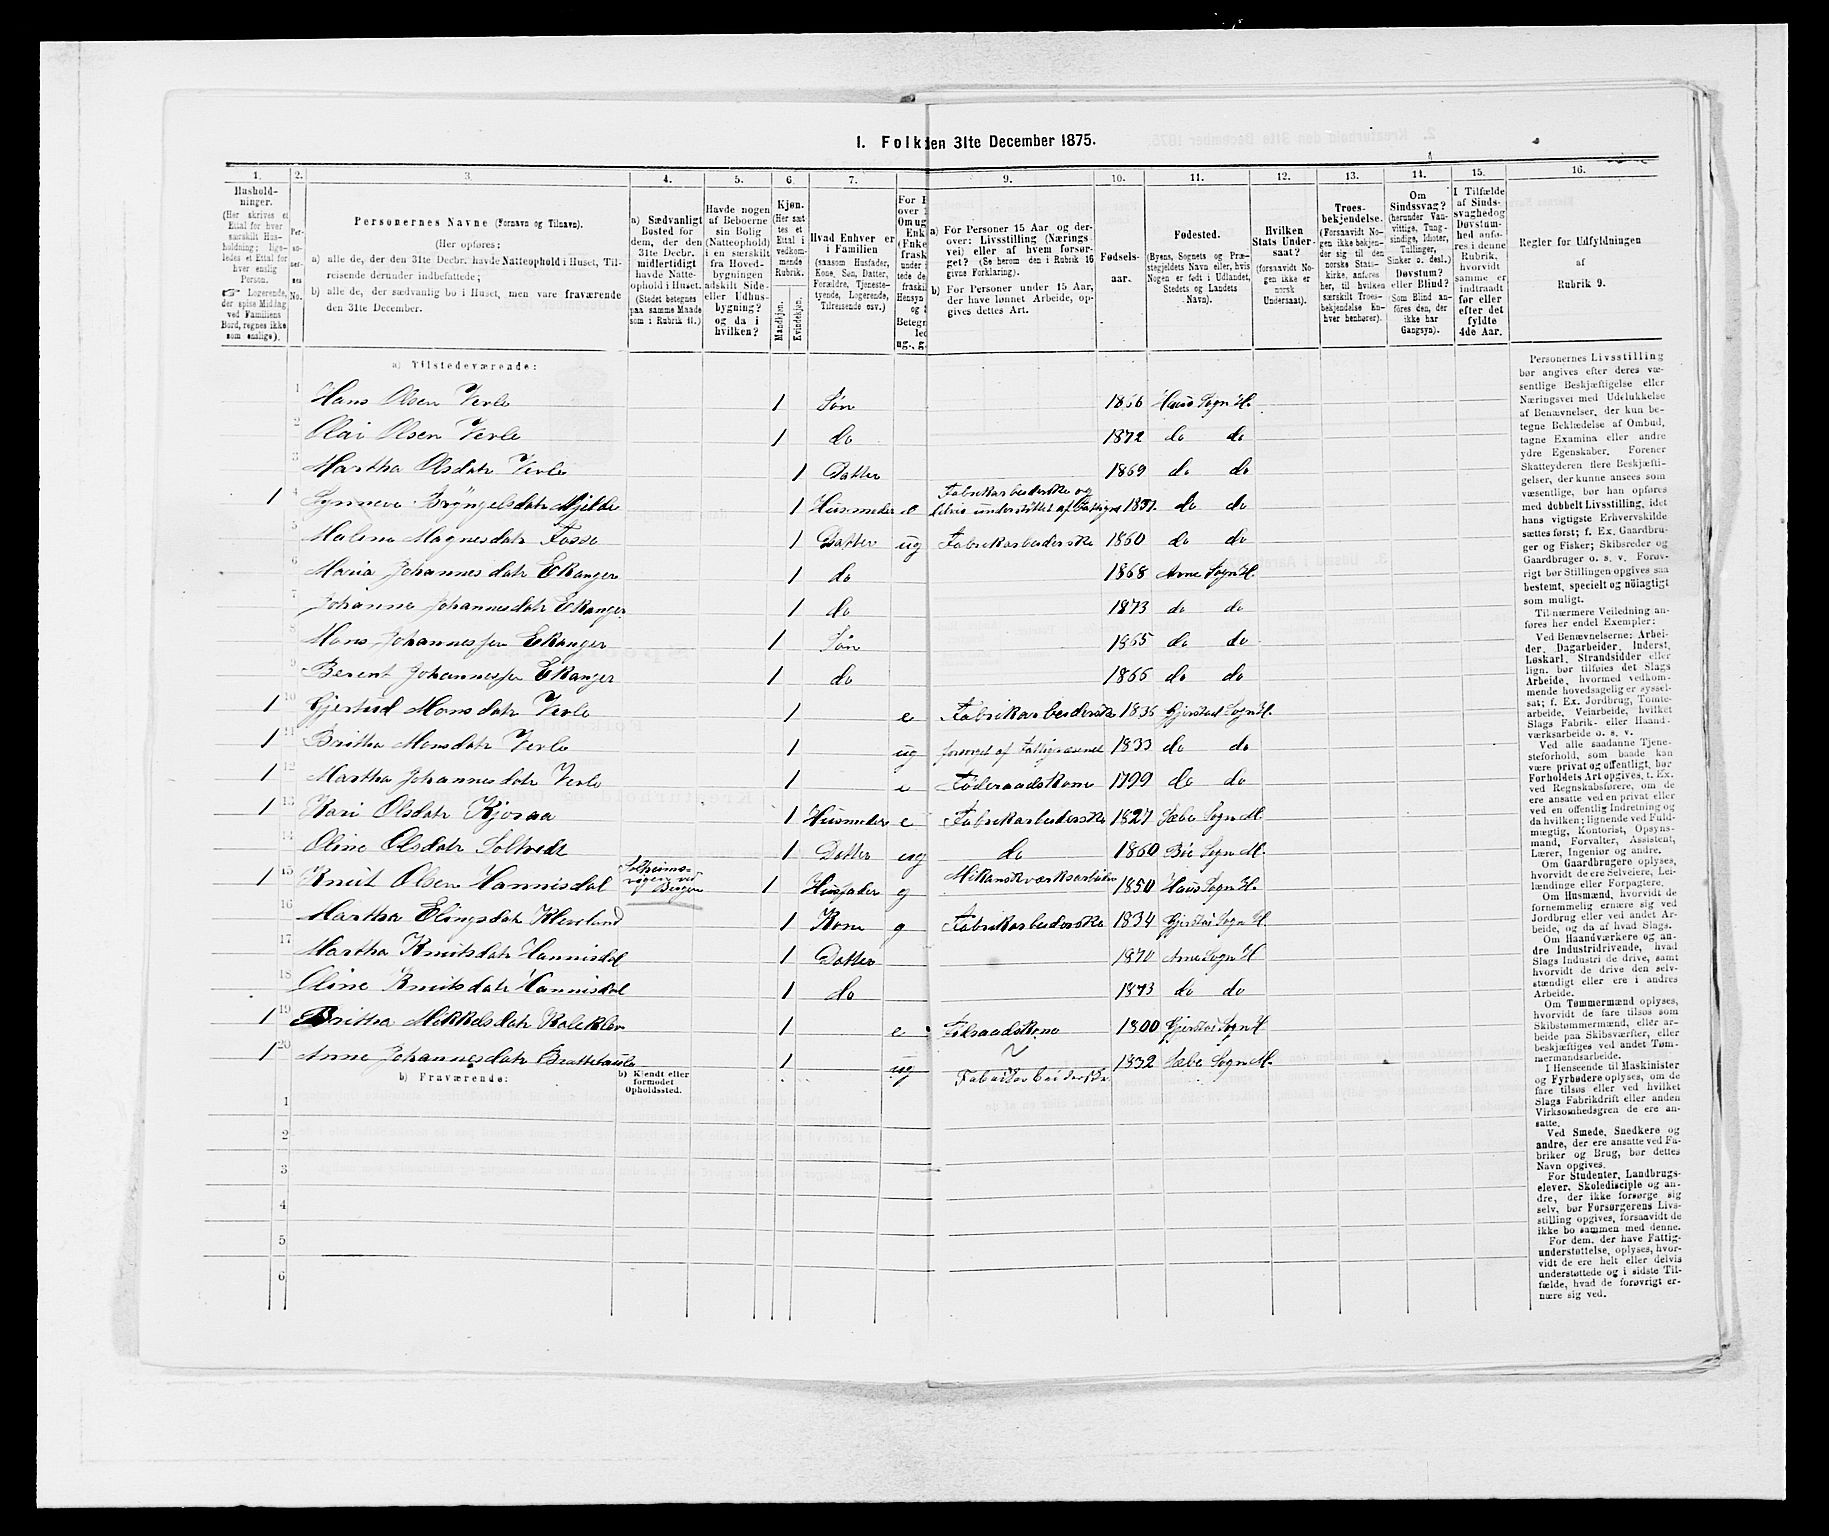 1. Folk den 31te December 1875.
1. 2. 3. 4. 5. 6. 7. 9. 10. 11. 12. 13. 14. 15. 16.
Hushold-
ninger.
(Her skrives et
Ettal for hver
særskilt Hus-
holdning; lige-
ledes et Ettal for
hver enslig
Person.
☞ Logerende,
der spise Middag
ved Familiens
Bord, regnes ikke
som enslige).
Per-
so-
ner-
nes
No.
Personernes Navne (Fornavn og Tilnavn).
(Her opføres:
a) alle de, der den 31te Decbr. havde Natteophold i Huset, Til-
reisende derunder indbefattede;
b) alle de, der sædvanlig bo i Huset, men vare fraværende
den 31te December.
a) Sædvanligt
Bosted for
dem, der den
31te Decbr.
midlertidigt
havde Natte-
ophold i Huset.
(Stedet betegnes
paa samme Maade
som i Rubrik 11.)
Havde nogen
af Beboerne
sin Bolig
(Natteophold)
i en særskilt
fra Hoved-
bygningen
adskilt Side-
eller Udhus-
bygning?
og da i
hvilken?
Kjøn.
(Her sæt-
tes et
Ettal i
vedkom-
mende
Rubrik.
Mandkjøn.
Kvindekjøn.
Hvad Enhver er
i Familien
(saasom Husfader,
Kone, Søn, Datter,
Forældre, Tjeneste-
tyende, Logerende,
Tilreisende osv.)
a) For Personer 15 Aar og der-
over: Livsstilling (Nærings-
vei) eller af hvem forsør-
get? (Se herom den i Rubrik 16
givne Forklaring).
b) For Personer under 15 Aar,
der have lønnet Arbeide, op-
gives dettes Art.
Fødsels-
aar.
Fødested.
(Byens, Sognets og Præ-
stegjeldets Navn eller, hvis
Nogen er født i Udlandet,
Stedets og Landets
Navn).
Hvilken
Stats Under-
saat?
(forsaavidt No-
gen ikke er
norsk
Undersaat).
Troes-
bekjendelse.
(Forsaavidt No-
gen ikke bekjen-
der sig til den
norske Stats-
kirke, anføres
her, til hvilken
særskilt Troes-
bekjendelse En-
hver henhører).
Om
Sindssvag?
(herunder Van-
vittige, Tung-
sindige, Idioter,
Tullinger,
Sinker o. desl.)
Døvstum?
eller Blind?
(Som Blind an-
føres den, der
ikke har
Gangsyn).
I Tilfælde
af Sinds-
svaghed og
Døvstum-
hed anfø-
res i denne
Rubrik,
hvorvidt
samme er
indtraadt
før eller
efter det
fyldte
4de Aar.
Regler for Udfyldningen
af
Rubrik 9.
a) Tilstedeværende:
1 Hans Olsen Verle 1 Søn 1866 Haus Sogn H.
2 Olai Olsen Verle 1 do 1872 do do
3 Martha Olsdatr Verle 1 Datter 1869 do do
1 4 Synneve Bryngelsdatr Mjelde 1 Husmoder e Fabrikarbeiderske og
delvis understøttet af Fattigv 1831 do do
5 Malena Magnesdatr Fosse 1 Datter ug Fabrikarbeiderske 1860 do do
6 Maria Johannesdatr Ekanger 1 do 1868 Arne Sogn H.
7 Johanna Johannesdatr Ekanger 1 do 1873 do do
8 Mons Johannessen Ekanger 1 Søn 1865 do do
9 Berent Johannessen Ekanger 1 do 1866 do do
1 10 Gjertrud Monsdatr Verle 1 e Fabrikarbeiderske 1836 Gjerstad Sogn H.
1 11 Britha Monsdatr Verle 1 ug forsørget af Fattigvæsenet 1833 do do
1 12 Martha Johannesdatr Verle 1 e Føderaadskone 1799 do do
1 13 Kari Olsdatr Kjoraa 1 Husmoder e Fabrikarbeiderske 1827 Sæbø Sogn M.
14 Oline Olsdatr Soltvedt 1 Datter ug do 1860 Bø Sogn M.
1 15 Knut Olsen Hannisdal Solheims-
vogen ved
Bergen 1 Husfader g Mekaniskværksarbeider 1850 Haus Sogn H.
16 Martha Elingsdatr Kleveland 1 Kone g Fabrikarbeiderske 1834 Gjerstad Sogn H.
17 Martha Knutsdatr Hannisdal 1 Datter 1870 Arne Sogn H
18 Oline Knutsdatr Hannisdal 1 do 1873 do do
1 19 Britha Mikkelsdatr Kaleklev 1 e Føderaadskone 1800 Gjerstad Sogn H
1 20 Anne Johannesdatr Brattetaule 1 ug Fabrikarbeiderske 1832 Sæbø Sogn M.
b) Fraværende:
b) Kjendt eller
formodet
Opholdssted.
1
2
3
4
5
6
Personernes Livsstilling
bør angives efter deres væ-
sentlige Beskjæftigelse eller
Næringsvei med Udelukkelse
af Benævnelser, der kun be-
tegne Beklædelse af Ombud,
tagne Examina eller andre
ydre Egenskaber. Forener
Skatteyderen flere Beskjæfti-
gelser, der kunne ansees som
væsentlige, bør han opføres
med dobbelt Livsstilling, idet
hans vigtigste Erhvervskilde
sættes først; f. Ex. Gaardbru-
ger og Fisker; Skibsreder og
Gaardbruger o. s. v. Forøv-
rigt bør Stillingen opgives saa
bestemt, specielt og nøiagtig
som muligt.
Til nærmere Veiledning an-
føres her endel Exempler:
Ved Benævnelserne: Arbei-
der, Dagarbeider, Inderst,
Løskarl, Strandsidder eller
lign. bør tilføies det Slags
Arbeide, hvormed vedkom-
mende hovedsagelig er syssel-
sat; f. Ex. Jordbrug, Tomte-
arbeide, Veiarbeide, hvilket
Slags Fabrik- eller Haand-
værksarbeide o. s. v.
Ved alle saadanne Tjene-
steforhold, som baade kan
være privat og offentligt, bør
Forholdets Art opgives, t. Ex.
ved Regnskabsførere, om de
ere ansatte ved en privat eller
ved en offentlig Indretning og
da hvilken; lignende ved Fuld-
mægtig, Kontorist, Opsyns-
mand, Forvalter, Assistent,
Lærer, Ingeniør og andre.
Om Gaardbrugere oplyses,
hvorvidt de ere Selveiere, Lei-
lændinge eller Forpagtere.
Om Husmænd, hvorvidt de
fornemmelig ernære sig ved
Jordbrug eller ved andet Ar-
beide, og da af hvad Slags.
Om Haandværkere og an-
dre Industridrivende, hvad
Slags Industri de drive, samt
hvorvidt de drive den selv-
stændigt eller ere i andres
Arbeide.
Om Tømmermænd oplyses,
hvorvidt de fare tilsøs som
Skibstømmermænd, eller ar-
beide paa Skibsværfter, eller
beskjæftiges ved andet Tøm-
mermandsarbeide.
I Henseende til Maskinister
og Fyrbødere oplyses, om de
fare tilsøs eller ved hvilket
Slags Fabrikdrift eller anden
Virksomhedsgren de ere an-
satte.
Ved Smede, Snedkere og
andre, der ere ansatte ved Fa-
briker og Brug, bør dettes
Navn opgives.
For Studenter, Landbrugs-
elever, Skoledisciple og an-
dre, der ikke forsørge sig
selv, bør Forsørgerens Livs-
stilling opgives, forsaavidt de
ikke bo sammen med denne.
For dem, der have Fattig-
understøttelse, oplyses, hvor-
vidt de ere helt eller delvis
understøttede og i sidste Til-
fælde, hvad de forøvrigt er-
nære sig ved.